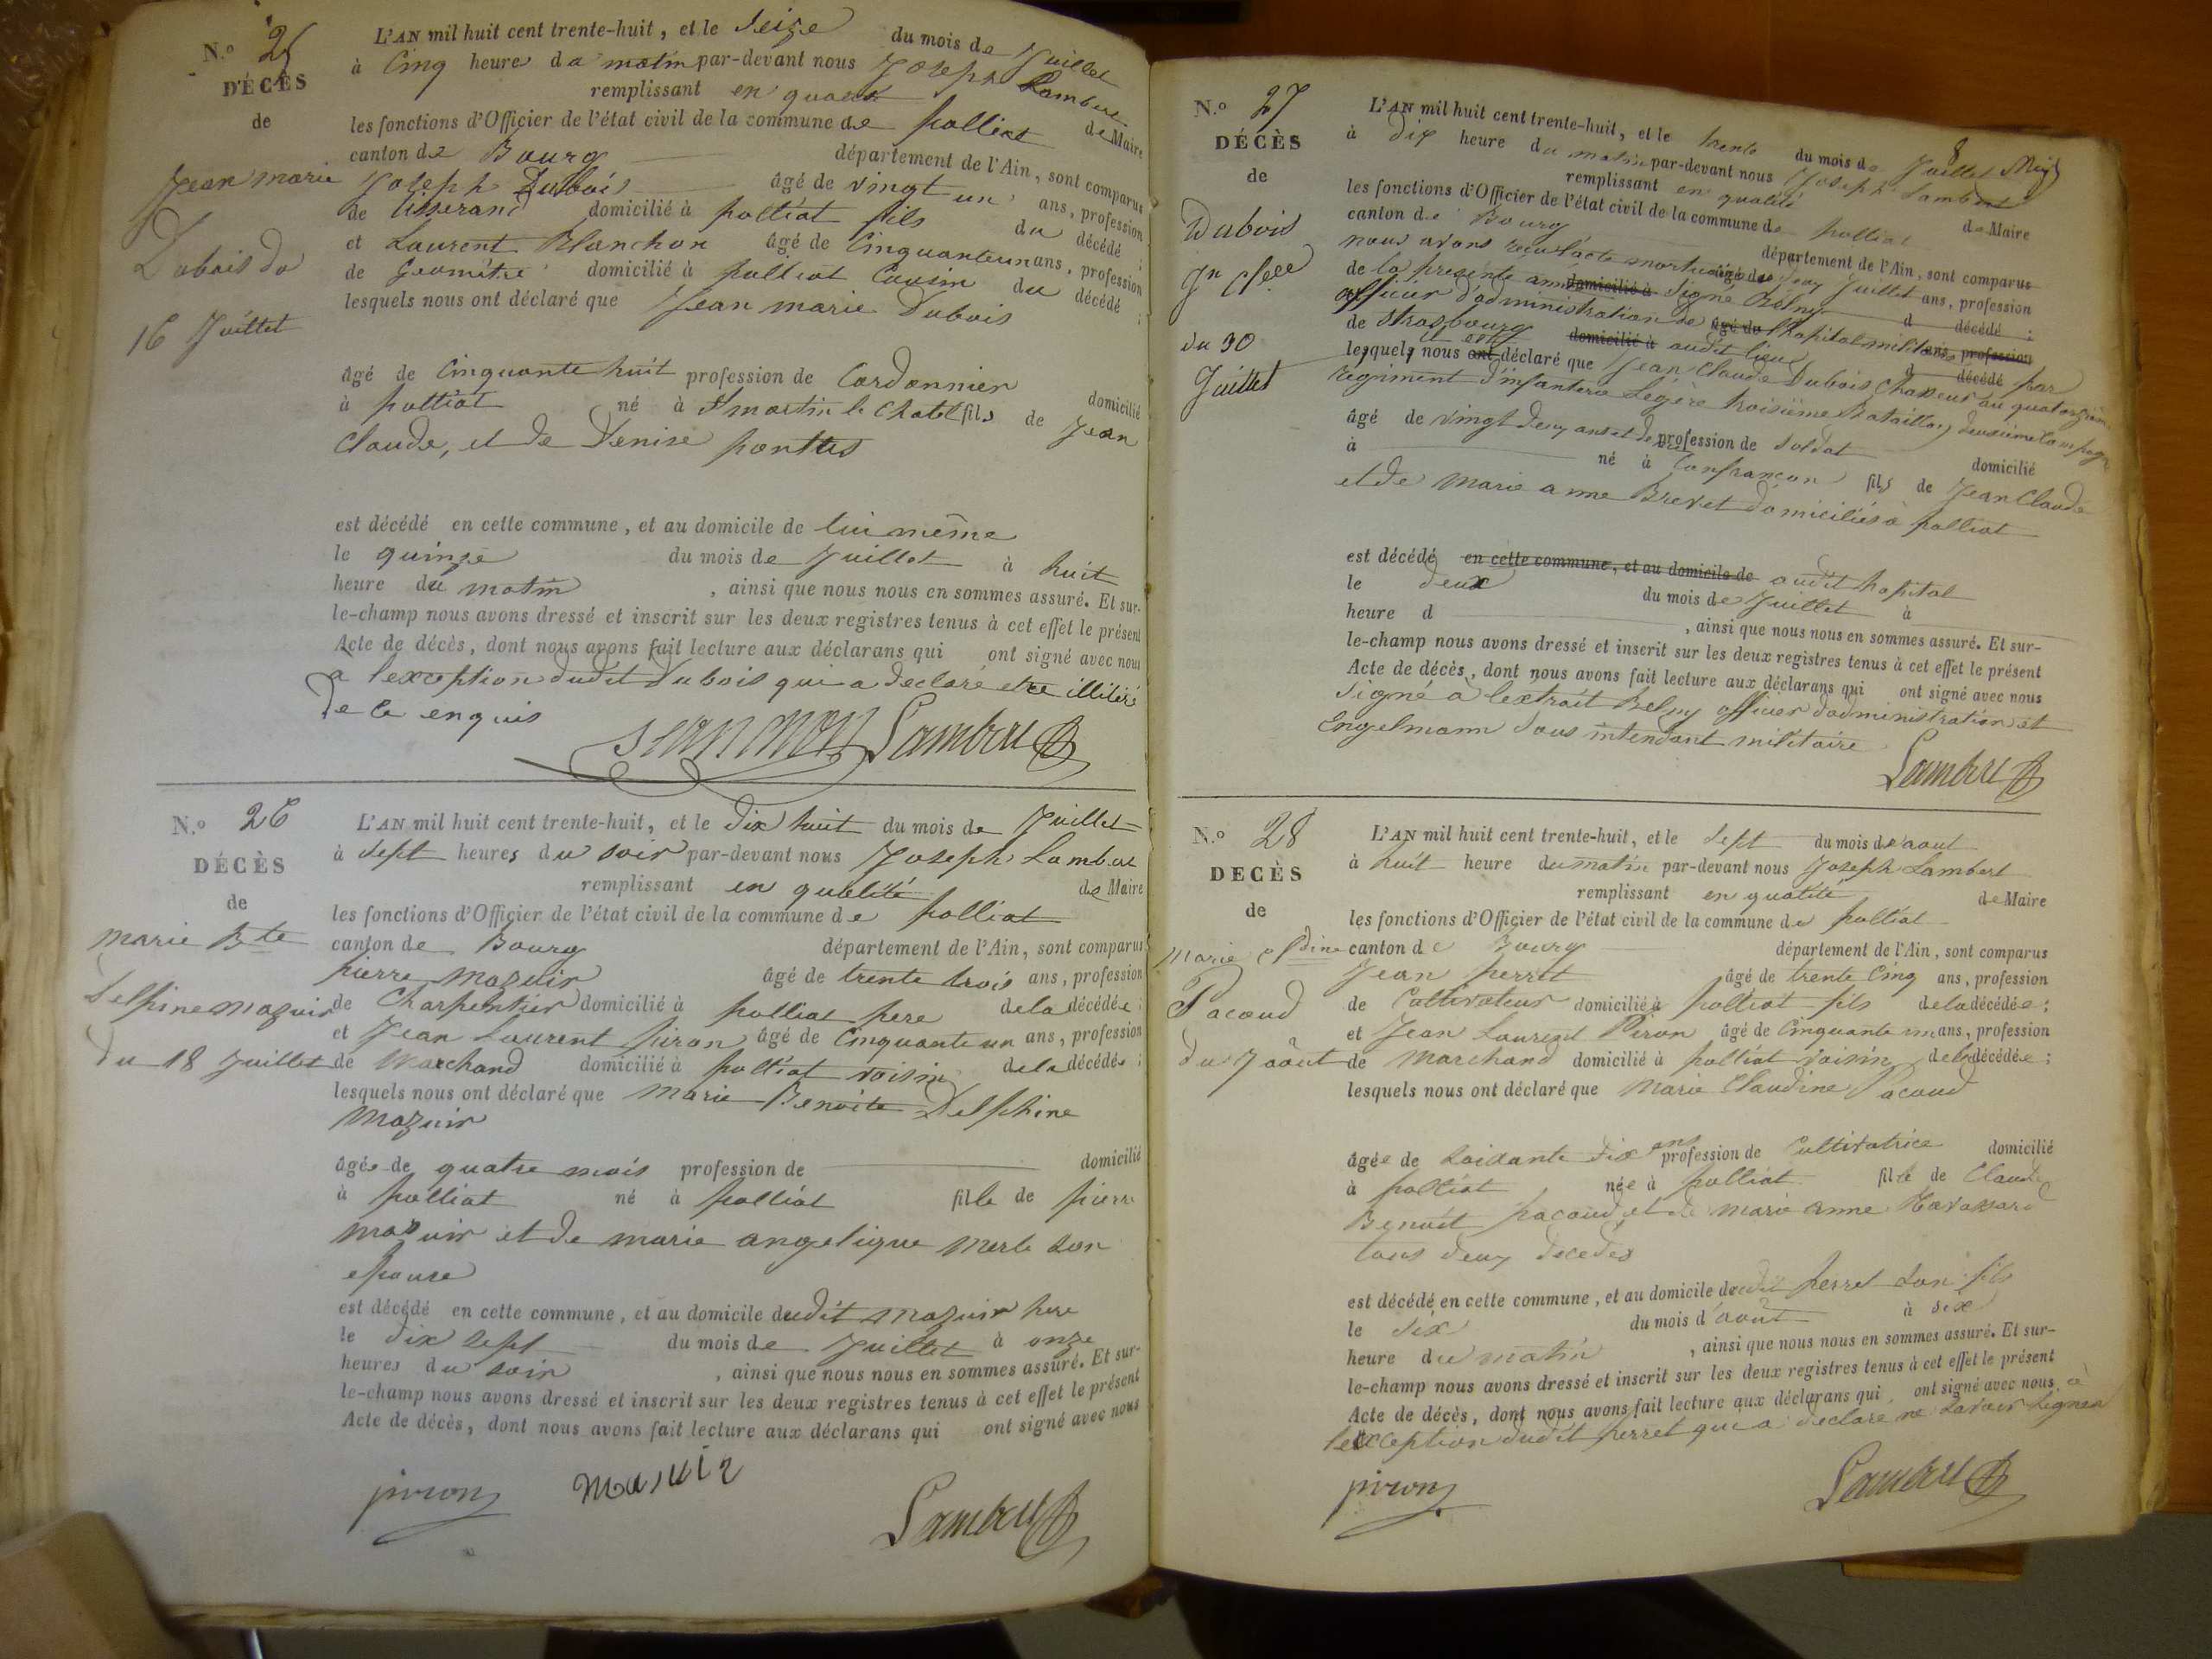 N.o 25
DÉCÈS
de
Jean marie
Dubois du
16 Juillet
L'AN mil huit cent trente-huit, et le Seize du mois de Juillet
à Cinq heures du matin par-devant nous Joseph Lambert
remplissant en qualité de Maire
les fonctions d'Officier de l'état civil de la commune de polliat
canton de Bourg département de l'Ain, sont comparus
Joseph Dubois âgé de vingt un ans, profession
de tisserand domicilié à polliat fils du décédé ;
et Laurent Blanchon âgé de Cinquante un ans, profession
de Geomètre domicilié à polliat Cousin du décédé ;
lesquels nous ont déclaré que Jean marie Dubois
âgé de Cinquante huit profession de Cordonnier domicilié
à polliat né à St martin le Chatel fils de Jean
Claude, et de Denise
est décédé en cette commune, et au domicile de lui même
le quinze du mois de Juillet à huit
heure du matin , ainsi que nous nous en sommes assuré. Et sur-
le-champ nous avons dressé et inscrit sur les deux registres tenus à cet effet le présent
Acte de décès, dont nous avons fait lecture aux déclarans qui ont signé avec nous
a lexception dudit Dubois qui a declaré etre illitéré
de ce enquis
Lambert
N.o 26
DÉCÈS
de
marie Bte
Delphine mazuir
du 18 Juillet
L'AN mil huit cent trente-huit, et le dix huit du mois de Juillet
à sept heures du soir par-devant nous Joseph Lambert
remplissant en qualité de Maire
les fonctions d'Officier de l'état civil de la commune de polliat
canton de Bourg département de l'Ain, sont comparus
pierre mazuir âgé de trente trois ans, profession
de Charpentier domicilié à polliat pere de la décédée ;
et Jean Laurent piron âgé de Cinquante un ans, profession
de Marchand domicilié à polliat voisin de la décédée ;
lesquels nous ont déclaré que marie Benoite Delphine
mazuir
âgée de quatre mois profession de domicilié
à polliat né à polliat fille de pierre
mazuir et de marie angelique merle son
epouse
est décédé en cette commune, et au domicile dudit mazuir pere
le dix sept du mois de Juillet à onze
heures du soir , ainsi que nous nous en sommes assuré. Et sur-
le-champ nous avons dressé et inscrit sur les deux registres tenus à cet effet le présent
Acte de décès, dont nous avons fait lecture aux déclarans qui ont signé avec nous
piron masuir
Lambert
N.o 27
DÉCÈS
de
Dubois
Jn Clde
du 30
Juillet
L'AN mil huit cent trente-huit, et le trente du mois de Juillet
à dix heure du matin par-devant nous Joseph Lambert
remplissant en qualité de Maire
les fonctions d'Officier de l'état civil de la commune de polliat
canton de Bourg département de l'Ain, sont comparus
nous avons reçu l'acte mortuaire âgé de du deux Juillet ans, profession
de la presente année domicilié à Signé Belny d décédé ;
officier d'administration de âgé de l'hopital militaire ans, profession
de Strasbourg domicilié à audit lieu d décédé par
lequel nous ont déclaré que Jean Claude Dubois Chasseur au quatorzième
regiment d'infanterie Légère troisième Bataillon, deuxième Compagnie
âgé de vingt deux ans et demi profession de soldat domicilié
à né à Confrançon fils de Jean Claude
et de Marie anne Brevet domiciliés à polliat
est décédé en cette commune, et au domicile de audit hopital
le deux du mois de Juillet à
heure d , ainsi que nous nous en sommes assuré. Et sur-
le-champ nous avons dressé et inscrit sur les deux registres tenus à cet effet le présent
Acte de décès, dont nous avons fait lecture aux déclarans qui ont signé avec nous
Signé à lextrait Belny officier d'administration et
Engelmann Sous intendant militaire
Lambert
N.o 28
DECÈS
de
Marie Cldine
Pacoud
du 7 août
L'AN mil huit cent trente-huit, et le sept du mois d'aout
à huit heure du matin par-devant nous Joseph Lambert
remplissant en qualité de Maire
les fonctions d'Officier de l'état civil de la commune de polliat
canton de Bourg département de l'Ain, sont comparus
Jean perret âgé de trente Cinq ans, profession
de Cultivateur domicilié à polliat fils de la décédée ;
et Jean Laurent Piron âgé de Cinquante un ans, profession
de Marchand domicilié à polliat voisin de la décédée ;
lesquels nous ont déclaré que Marie Claudine Pacoud
âgée de soixante dix ans profession de Cultivatrice domicilié
à polliat née à polliat fille de Claude
Benoît pacoud et de marie anne
tous deux décédés
est décédé en cette commune, et au domicile dudit perret son fils
le six du mois d'août à six
heure du matin , ainsi que nous nous en sommes assuré. Et sur-
le-champ nous avons dressé et inscrit sur les deux registres tenus à cet effet le présent
Acte de décès, dont nous avons fait lecture aux déclarans qui ont signé avec nous à
lexception dudit perret qui a declaré ne savoir signer
piron
Lambert